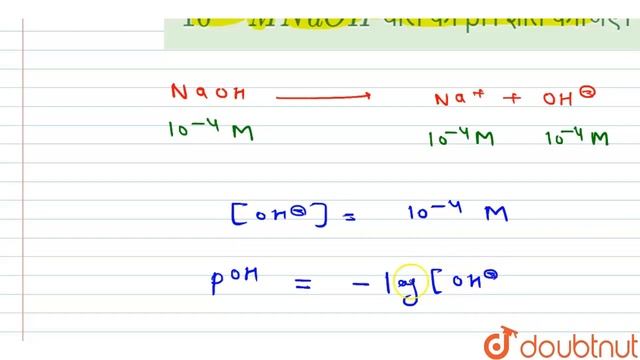 NaOH → Na⁺ + OH⊖
10⁻⁴ M 10⁻⁴ M 10⁻⁴ M
[OH⊖] = 10⁻⁴ M
pOH = - log [OH⊖
doubtnut